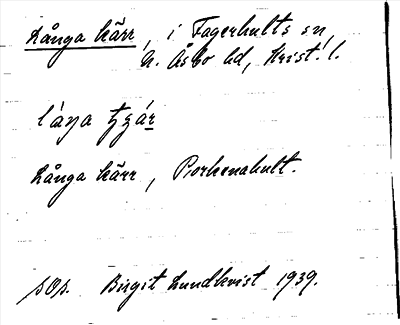 Långa kärr, i Fagerhults sn,
N. Åsbo hd, Krist. l.
Långa kärr, Porkenahult.
sOp. Birgit Lundkvist 1939.